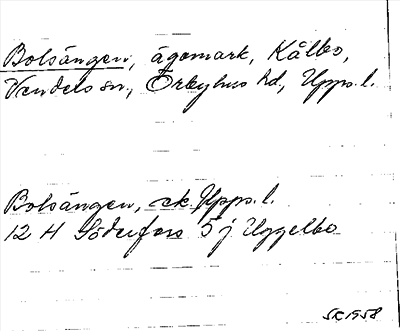 Bolsängen, ägomark, Kålbo,
Vendels sn, Örbyhus hd, Upps. l.
Bolsängen, ek. Upps. l.
12 H Söderfors 5 j Uggelbo
SR 1958